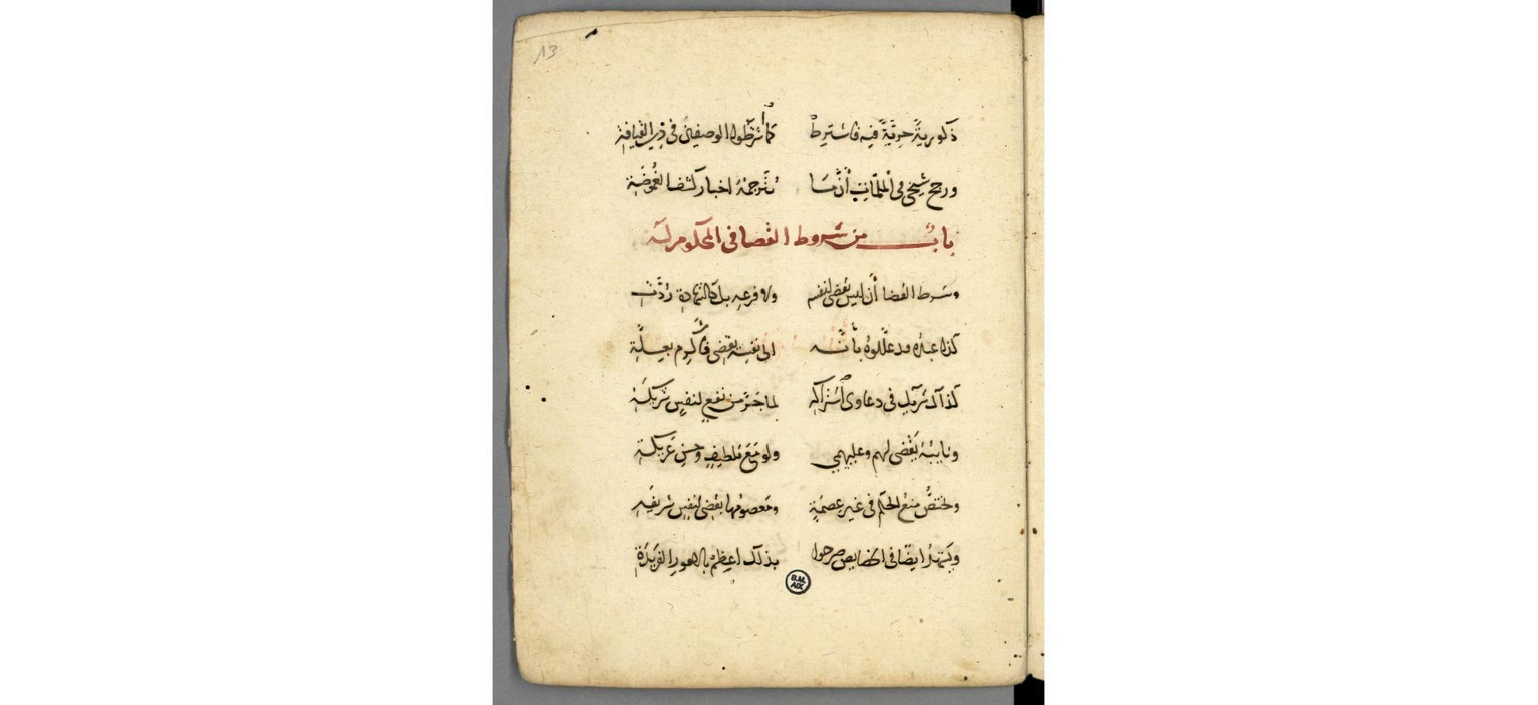 13
ذكورية حرية فيه فاشترط كما شرطوا الوصفين في ذي القيافة
ورجح شيخي في
باب من شروط القضا في المحكوم له
وشرط القضا أن ليس يقضي لنفسه ولا فرعه بل كالشهادة ردت
كذا عبده وعللوه بأنه الى نفسه يقضي فأكرم بعلة
كذا الشريك في دعاوى اشتراكه لما جر من نفع لنفس شريكة
ونايبه يقضي لهم وعليهمي ولو مع تلطيف وحسن عريكة
ويختص منع الحكم في غير عصمة ومعصومها يقضي لنفس شريفة
ويشهد ايضا في الخصايص صرحوا بذلك اعظم الفريدة
B.M. AIX